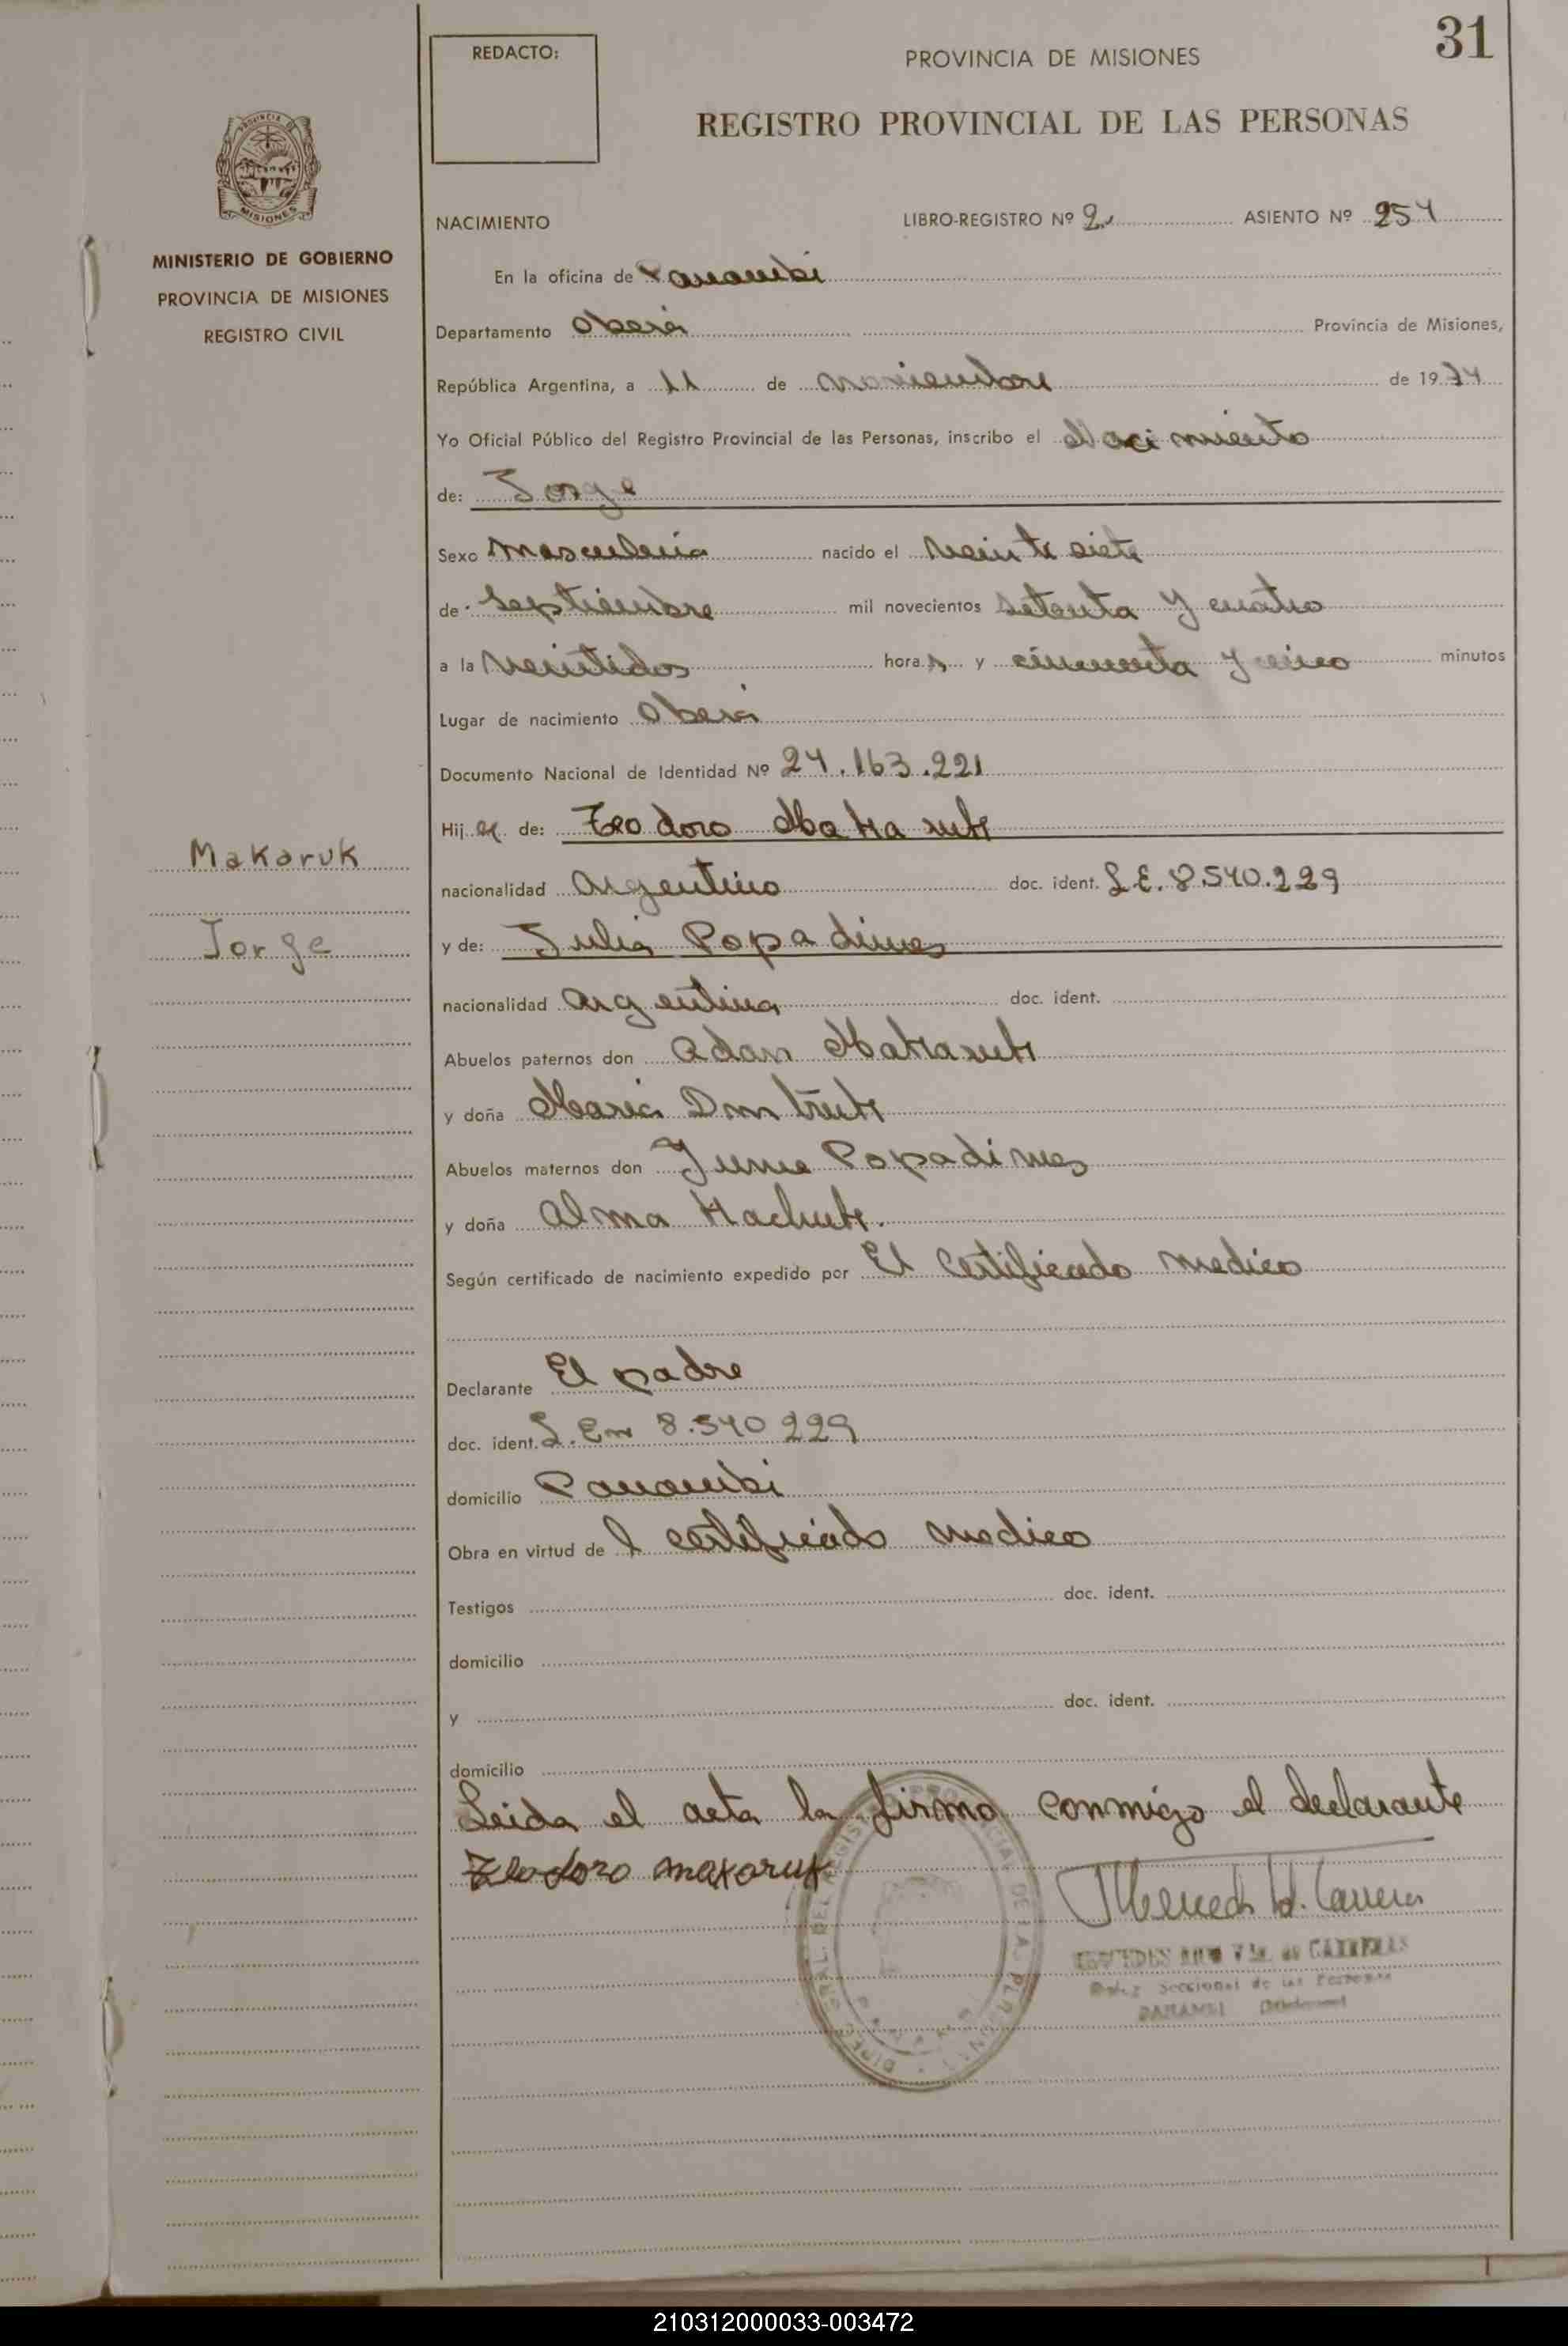 31
REDACTO:
PROVINCIA DE MISIONES
REGISTRO PROVINCIAL DE LAS PERSONAS
MISIONES
MINISTERIO DE GOBIERNO
PROVINCIA DE MISIONES
REGISTRO CIVIL
NACIMIENTO LIBRO-REGISTRO Nº 2 ASIENTO Nº 254
En la oficina de Panambi
Departamento Oberá Provincia de Misiones,
República Argentina, a 11 de noviembre de 1974
Yo Oficial Público del Registro Provincial de las Personas, inscribo el Nacimiento
de: Jorge
Sexo masculino nacido el veinte siete
de septiembre mil novecientos setenta y cuatro
a la veintidos hora s y cincuenta y cinco minutos
Lugar de nacimiento Oberá
Documento Nacional de Identidad Nº 24.163.221
Hij o de: Teodoro Makaruk
Makaruk
nacionalidad Argentino doc. ident. L.E. 8.540.229
Jorge
y de: Julia Popadiuc
nacionalidad Argentina doc. ident.
Abuelos paternos don Adan Makaruk
y doña Maria Dmitruk
Abuelos maternos don Popadiuc
y doña Alma
Según certificado de nacimiento expedido por El Certificado medico
Declarante El padre
doc. ident. L.E. 8.540 229
domicilio Panambi
Obra en virtud de l certificado medico
Testigos doc. ident.
domicilio
y doc. ident.
domicilio
Leida el acta la firma conmigo el declarante
Teodoro makaruk
de CARRERAS
Seccional de las Personas
PANAMBI
210312000033-003472